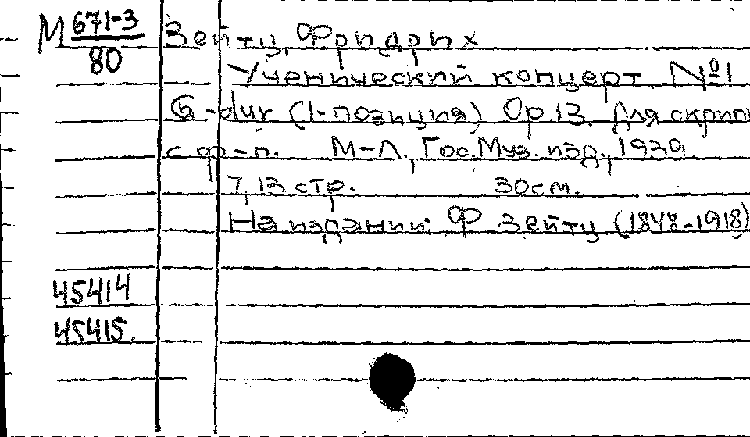 М 671-3
80
Зейтц, Фридрих
Ученический концерт №1
G-dur (1-позиция) Op.13. Для скрип
с ф-п. М-Л., Гос. Муз. изд., 1939.
7, 13 стр. 30 см.
На издании: Ф Зейтц (1848-1918)
45414
45415.